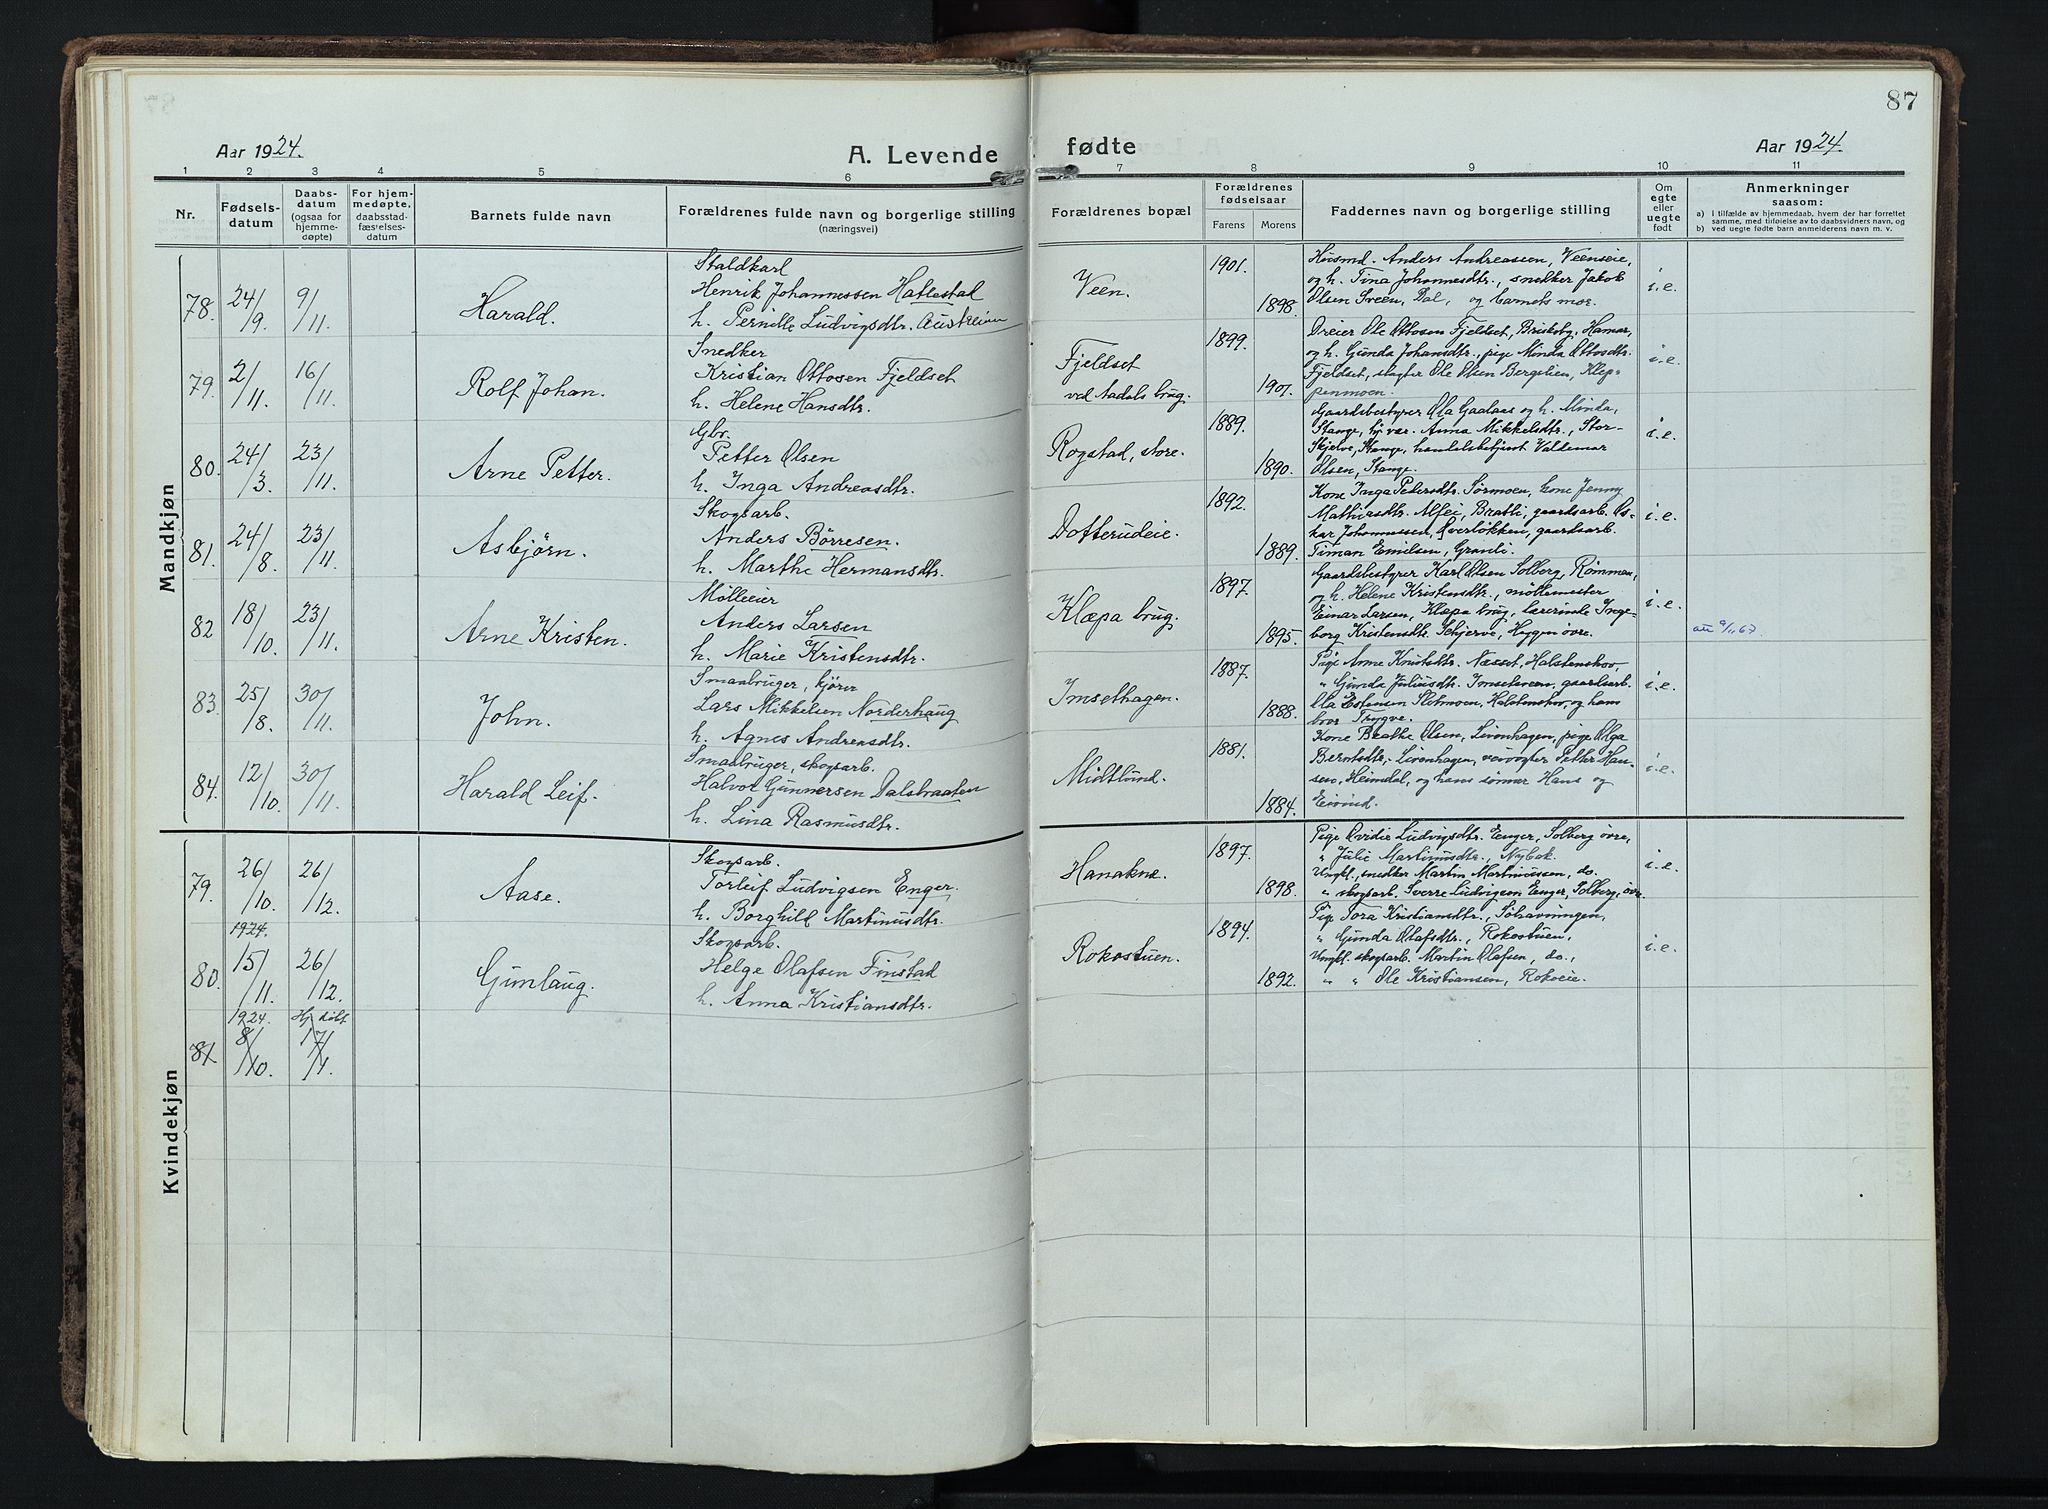 87
Aar 1924.
A. Levende
fødte
Aar 1924.
1 2 3 4 5 6 7 8 9 10 11
Nr.
Fødselsdatum
Daabsdatum (ogsaa for hjemmedøpte)
For hjemmedøpte, daabsstadfæstelsesdatum
Barnets fulde navn
Forældrenes fulde navn og borgerlige stilling
(næringsvei)
Forældrenes bopæl
Forældrenes fødselsaar
Farens
Morens
Faddernes navn og borgerlige stilling
Om egte eller uegte født
Anmerkninger
saasom:
a) I tilfælde av hjemmedaab, hvem der har forrettet
samme, med tilføielse av to daabsvidners navn, og
b) ved uegte fødte barn anmelderens navn m. v.
Mandkjøn
78. 24/9. 9/11. Harald.
Staldkarl
Henrik Johannessen Hatlestad
h. Pernille Ludvigsdtr. Austreim
Veen.
1901.
1898.
Husmd. Anders Andreassen, Veenseie,
og h. Tina Johannesdtr., snekker Jakob
Olsen Sveen, Dal, og barnets mor.
i.e.
79. 2/11. 16/11. Rolf Johan.
Snedker
Kristian Ottosen Fjeldset
h. Helene Hansdtr.
Fjeldset
ved Aadals brug.
1899.
1901.
Dreier Ole Ottosen Fjeldset, Briskeby, Hamar,
og h. Gunda Johansdtr., pige Minda Ottosdtr.
Fjeldset, slagter Ole Olsen Bergslien, Klep-
penmoen.
i.e.
80. 24/3. 23/11. Arne Petter.
Gbr.
Petter Olsen
h. Inga Andreasdtr.
Rogstad, store.
1889.
1890.
Gaardsbestyrer Ola Gaalaas og h. Minda,
Stange, Anna Mikkelsdtr., Stor-
Skjelve, Stange, handelsbetjent Valdemar
Olsen, Stange.
i.e.
81. 24/8. 23/11. Asbjørn.
Skogsarb.
Anders Børresen.
h. Marthe Hermansdtr.
Dotterudeie.
1892.
1889.
Kone Inga Petersdtr. Sørmoen, kone Jenny
Mathiasdtr. Alfei, Bratli, gaardsarb. Os-
kar Johannessen, Øverløkken, gaardsarb.
Timan Emilsen, Granli.
i.e.
82 18/10. 23/11. Arne Kristen.
Mølleeier
Anders Larsen
h. Marie Kristensdtr.
Klæpa brug.
1897.
1895.
Gaardsbestyrer Karl Olsen Solberg, Rømmen,
og h. Helene Kristensdtr., møllemester
Einar Larsen, Klæpa brug, lærerinde Inge-
borg Kristensdtr. Schjerve, Hygen øvre.
i.e.
att 9/11 67.
83. 25/8. 30/11. John.
Smaabruger, kjører
Lars Mikkelsen Norderhaug
h. Agnes Andreasdtr.
Imsethagen.
1887.
1888.
Pige Anne Knutsdtr. Næsset, Halstenshov,
" Gunda Juliusdtr. Imsetveen, gaardsarb.
Ola Estensen Slotmoen, Halstenshov, og hans
bror Trygve.
i.e.
84. 12/10. 30/11. Harald Leif.
Smaabruger, skogsarb.
Halvor Gunnersen Dalsbraaten
h. Lina Rasmusdtr.
Midtlund.
1881.
1884.
Kone Beathe Olsen, Livenhagen, pige Olga
Berntsdtr. Livenhagen, veivogter Petter Han-
sen, Heimdal, og hans sønner Hans og
Eivind.
i.e.
Kvindekjøn
79. 26/10. 26/12. Aase.
Skogsarb.
Torleif Ludvigsen Enger.
h. Borghild Martinusdtr.
Hanakne.
1897.
1898.
Pige Ovidie Ludvigsdtr. Enger, Solberg øvre,
" Julie Martinusdtr., Nybak.
Ungkl. snedker Martin Martinussen, do.
" skogsarb. Sverre Ludvigsen Enger, Solberg, øv.
i.e.
1924.
80. 15/11. 26/12. Gunlaug.
Skogsarb.
Helge Olafsen Finstad
h. Anna Kristiansdtr.
Rokostuen.
1894.
1892.
Pige Tora Kristiansdtr.,
" Gunda Olafsdtr., Rokostuen,
Ungkl. skogsarb. Martin Olafsen, do.,
" " Ole Kristiansen, Rokoeie.
i.e.
1924. Hj. døbt
81. 8/10. 17/1.